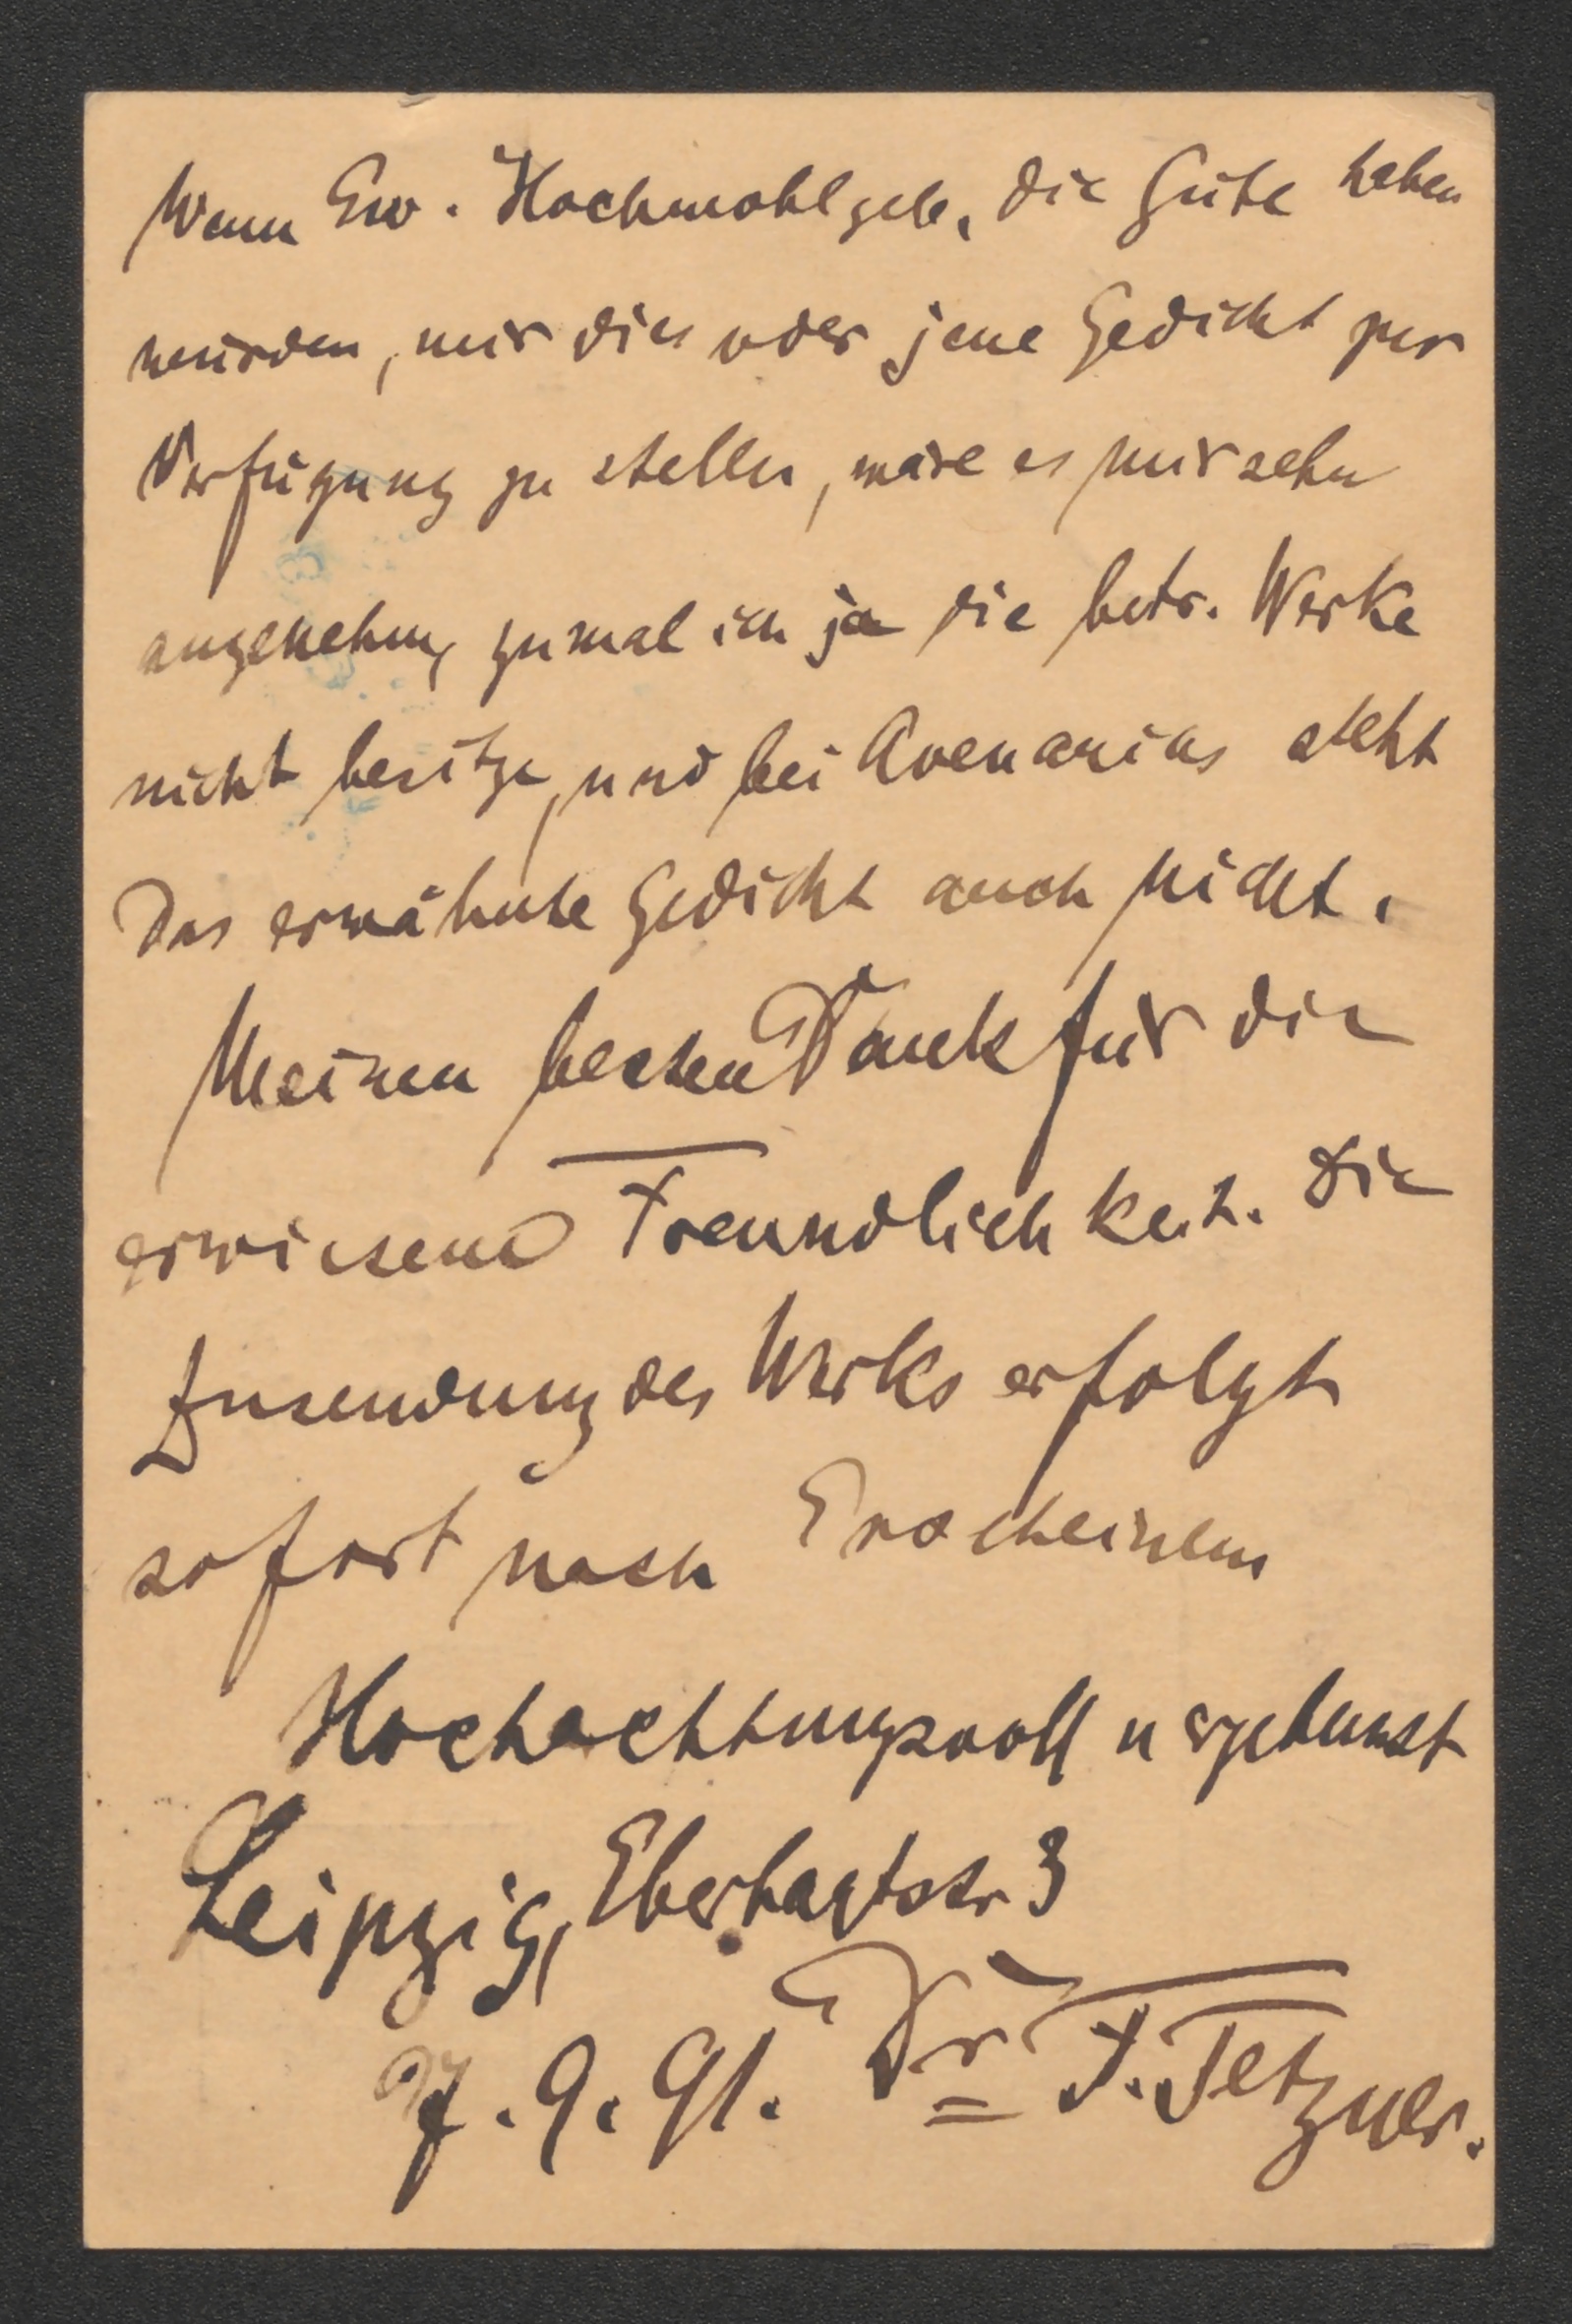 Wenn Ew. Hochwohlgeb. die Güte haben
würden, mir dies oder jene Gedicht zur
Verfügung zu stellen, wäre es mir sehr
angenehm, zumal ich ja die betr. Werke
nicht besitze, und bei Avenarius steht
das erwähnte Gedicht auch nicht.
Meinen besten Dank für die
erwiesene Freundlichkeit. Die
Zusendung des Werks erfolgt
sofort nach Erscheinen
Hochachtungsvoll u ergebenst
Leipzig, Eberhardtstr 3
7. 9. 91. Dr F. Tetzner.